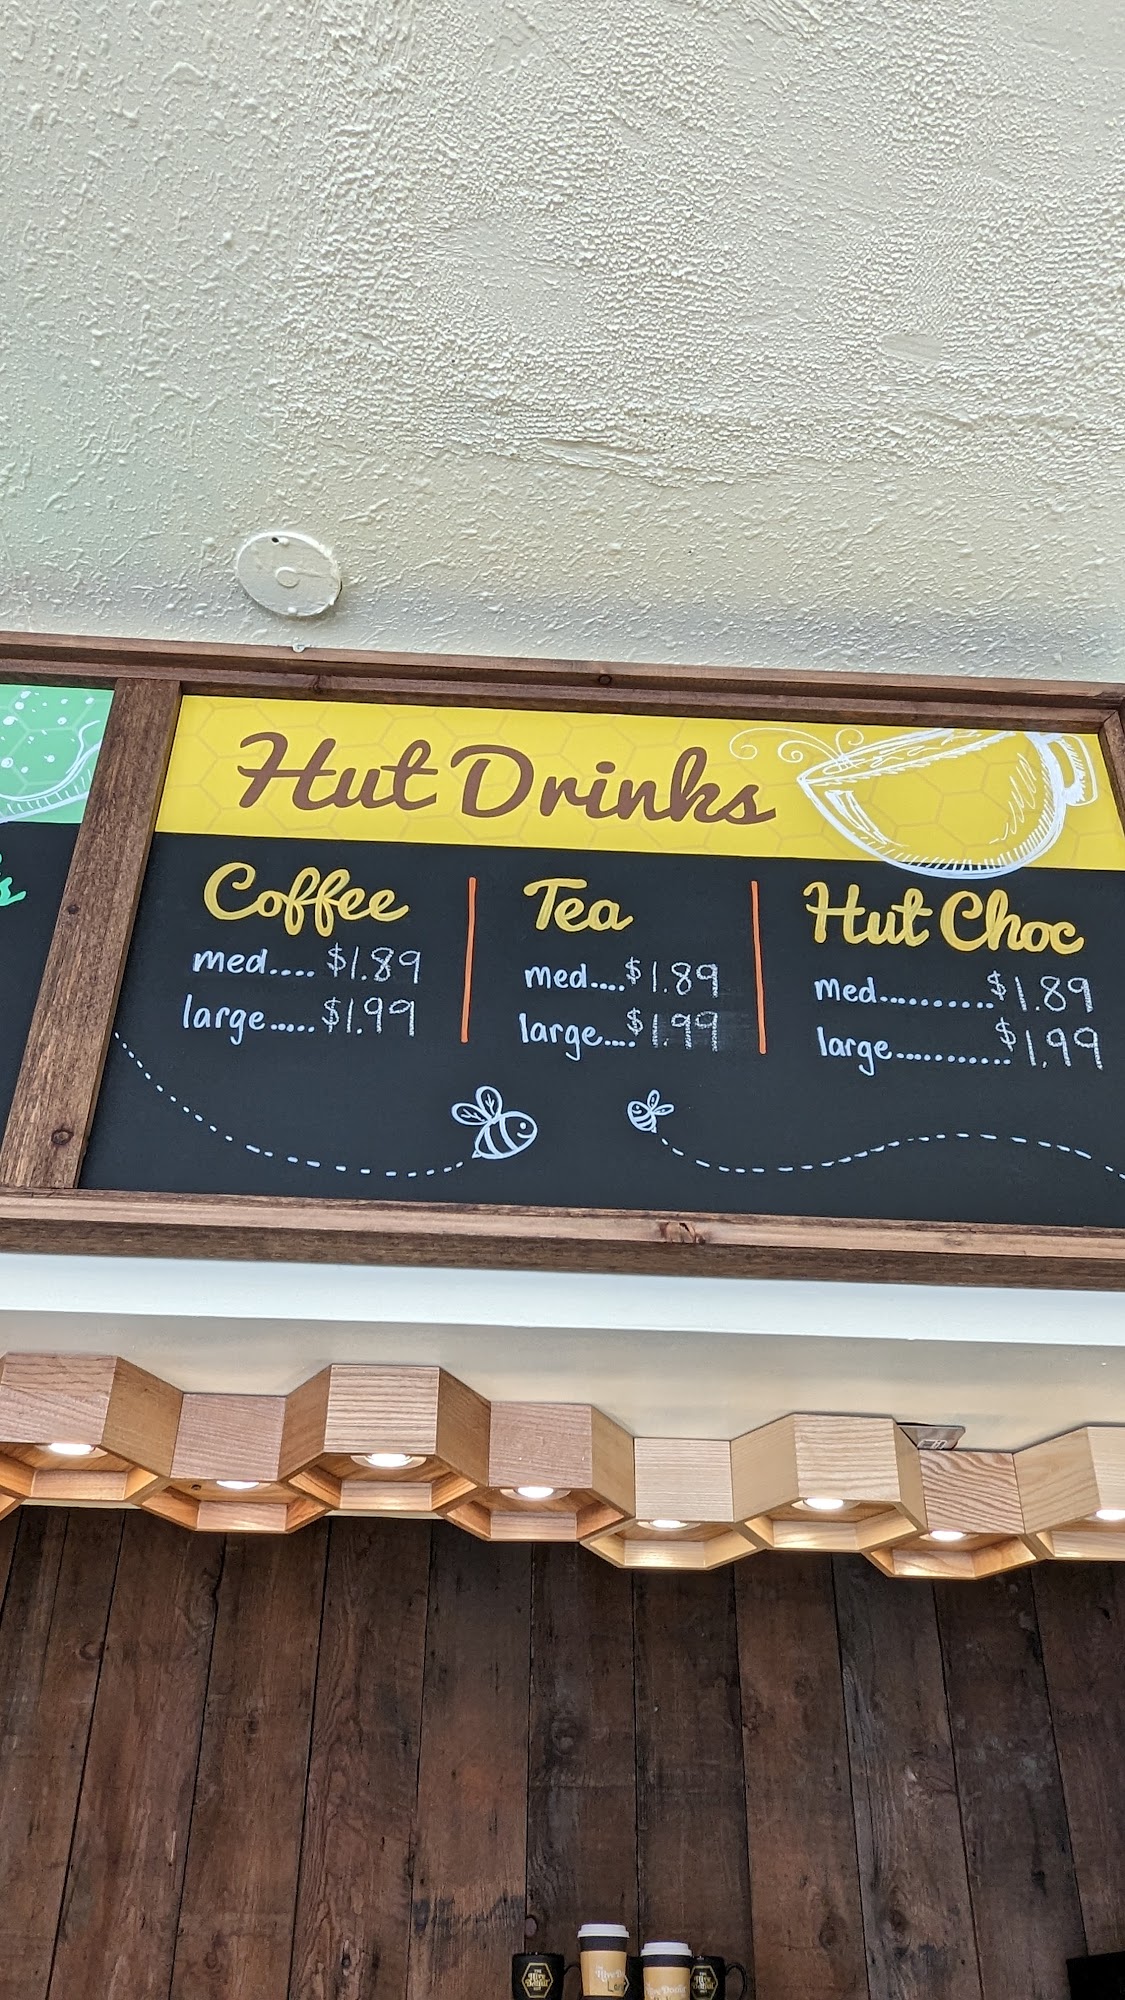 Hut Drinks
Coffee
med.... $1.89
large..... $1.99
Tea
med....$1.89
large....$1.99
Hut Choc
med...........$1.89
large...........$1.99